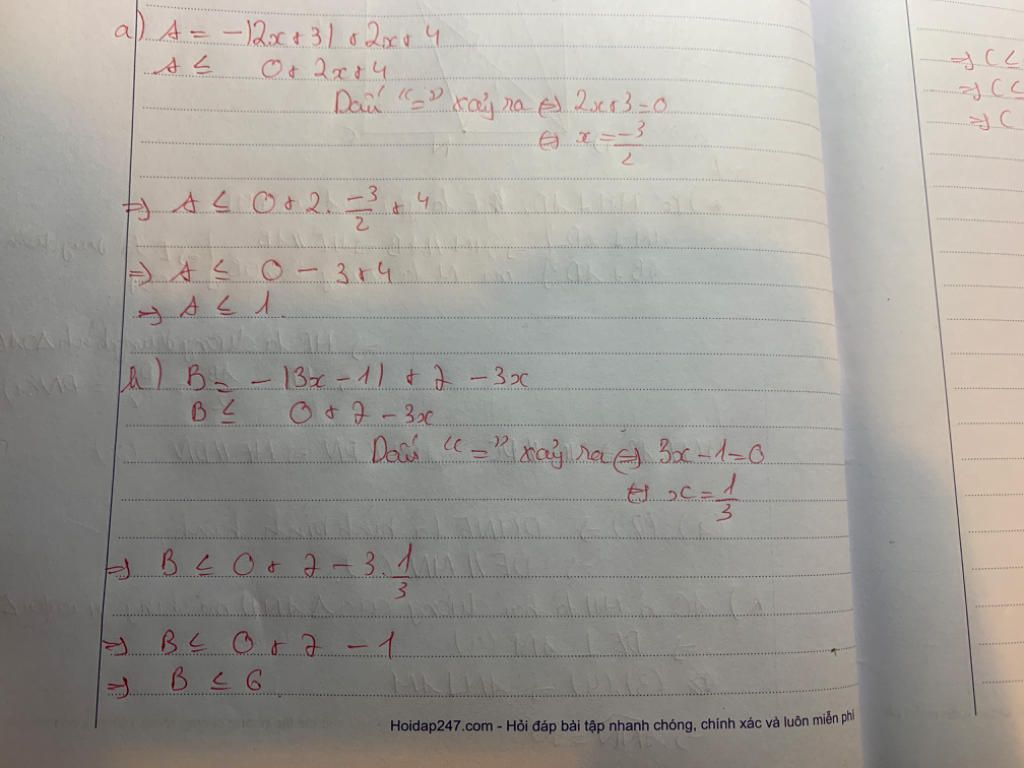 a) A = -|2x+3| + 2x+4
A ≤ 0+2x+4
Dấu "=" xảy ra ⇔ 2x+3=0
⇔ x = -3/2
⇒ A ≤ 0+2. -3/2 + 4
⇒ A ≤ 0 - 3+4
⇒ A ≤ 1.
b) B = - |3x - 1| + 7 - 3x
B ≤ 0 + 7 - 3x
Dấu "=" xảy ra ⇔ 3x-1=0
⇔ x = 1/3
⇒ B ≤ 0 + 7 - 3. 1/3
⇒ B ≤ 0 + 7 - 1
⇒ B ≤ 6
Hoidap247.com - Hỏi đáp bài tập nhanh chóng, chính xác và luôn miễn phí
⇒ C ≤
⇒ C ≤
⇒ C